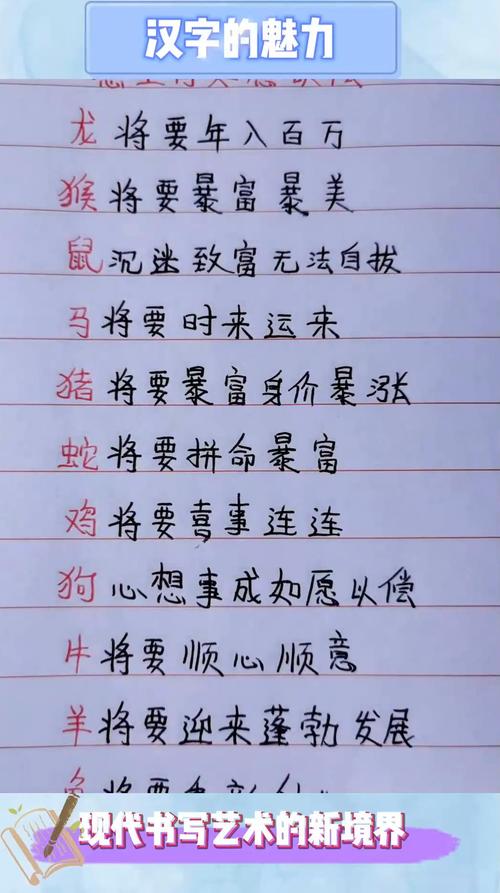 汉字的魅力
龙将要年入百万
猴将要暴富暴美
鼠沉迷致富无法自拔
马将要时来运来
猪将要暴富身价暴涨
蛇将要拼命暴富
鸡将要喜事连连
狗心想事成如愿以偿
牛将要顺心顺意
羊将要迎来蓬勃发展
兔将要
现代书写艺术的新境界